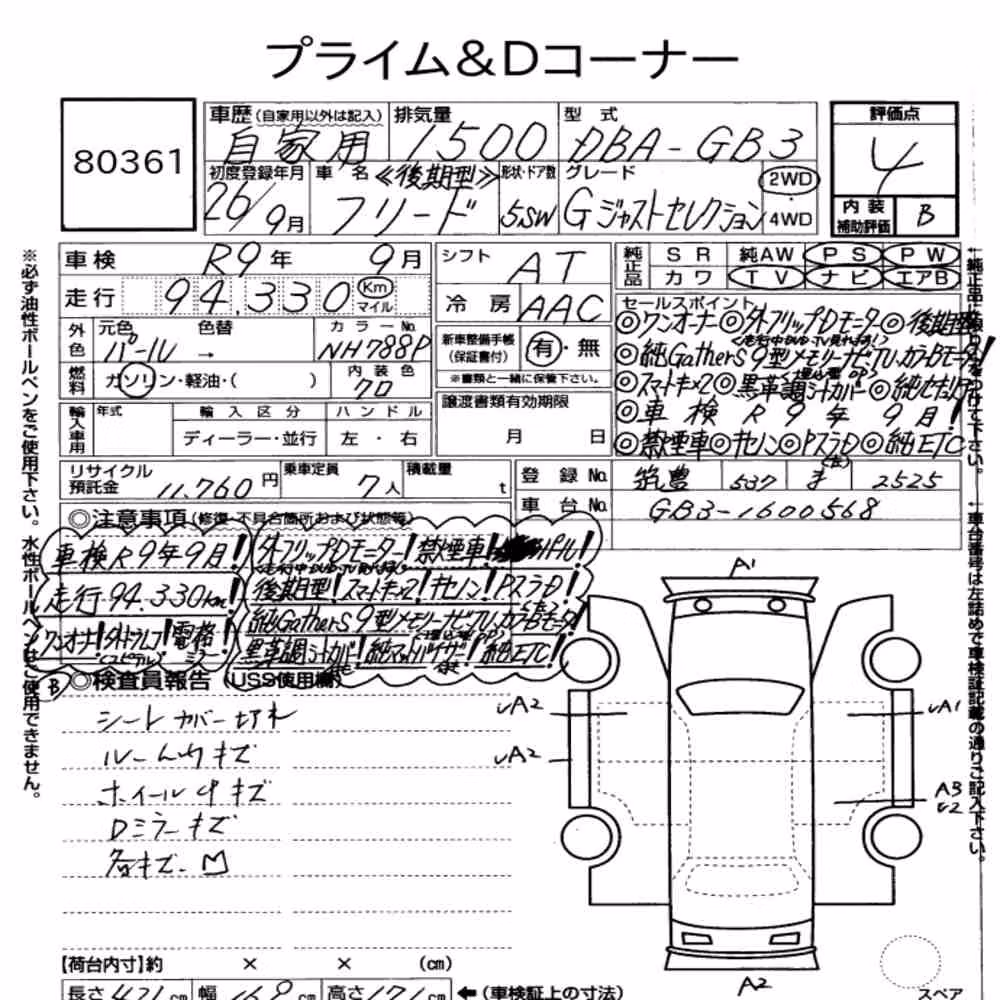 プライム&Dコーナー
80361
車歴(自家用以外は記入) 自家用
排気量 1500
型式 DBA-GB3
評価点 4
内装補助評価 B
初度登録年月 26/9月
車名 ≪後期型≫ フリード
形状・ドア数 5.SW
グレード Gジャストセレクション
2WD
4WD
車検 R9年 9月
シフト AT
純正品 SR 純AW PS PW
カワ TV ナビ エアB
走行 94.330 Km マイル
冷房 AAC
セールスポイント
◎ワンオーナー◎外フリップDモニター◎後期型
(走行中DVD・TV見れます!)
◎純Gathers9型メモリーナビ・TV・カラーBモニター!
◎スマートキー×2◎黒革調シートカバー◎純
◎車検R9年9月!
◎禁煙車◎キセノン◎PスラD(左)◎純ETC
外色 元色 パール → 色替
カラーNo. NH788P
新車整備手帳(保証書付) 有・無
※書類と一緒に保管下さい。
燃料 ガソリン・軽油・( )
内装色 クロ
輸入車用 年式 輸入区分 ハンドル
ディーラー・並行 左・右
譲渡書類有効期限
月 日
リサイクル預託金 11,760円
乗車定員 7人
積載量 t
登録No. 筑豊 537 ま 2525
車台No. GB3-1600568
◎注意事項(修復・不具合箇所および状態等)
車検R9年9月! 外フリップDモニター!禁煙車! パール!
(走行中DVD・TV見れます!)
走行94.330km! 後期型!スマートキー×2!キセノン!PスラD!
純Gathers9型メモリーナビ・TV・カラーBモニター!
ワンオーナー! 電格ミラー 黒革調シートカバー!純マットバイザー 純ETC!
B ◎検査員報告(USS使用欄)
シートカバー切れ
ルーム内キズ
ホイールキズ
Dミラーキズ
各キズ・凹
A1
UA2
UA1
UA2
A3
U2
A2
【荷台内寸】約 × × (cm)
長さ 421cm 幅 169cm 高さ 171cm ←(車検証上の寸法)
スペア
※必ず油性ボールペンをご使用下さい。水性ボールペンはご使用できません。
←車台番号は左詰めで車検証記載の通りご記入下さい。